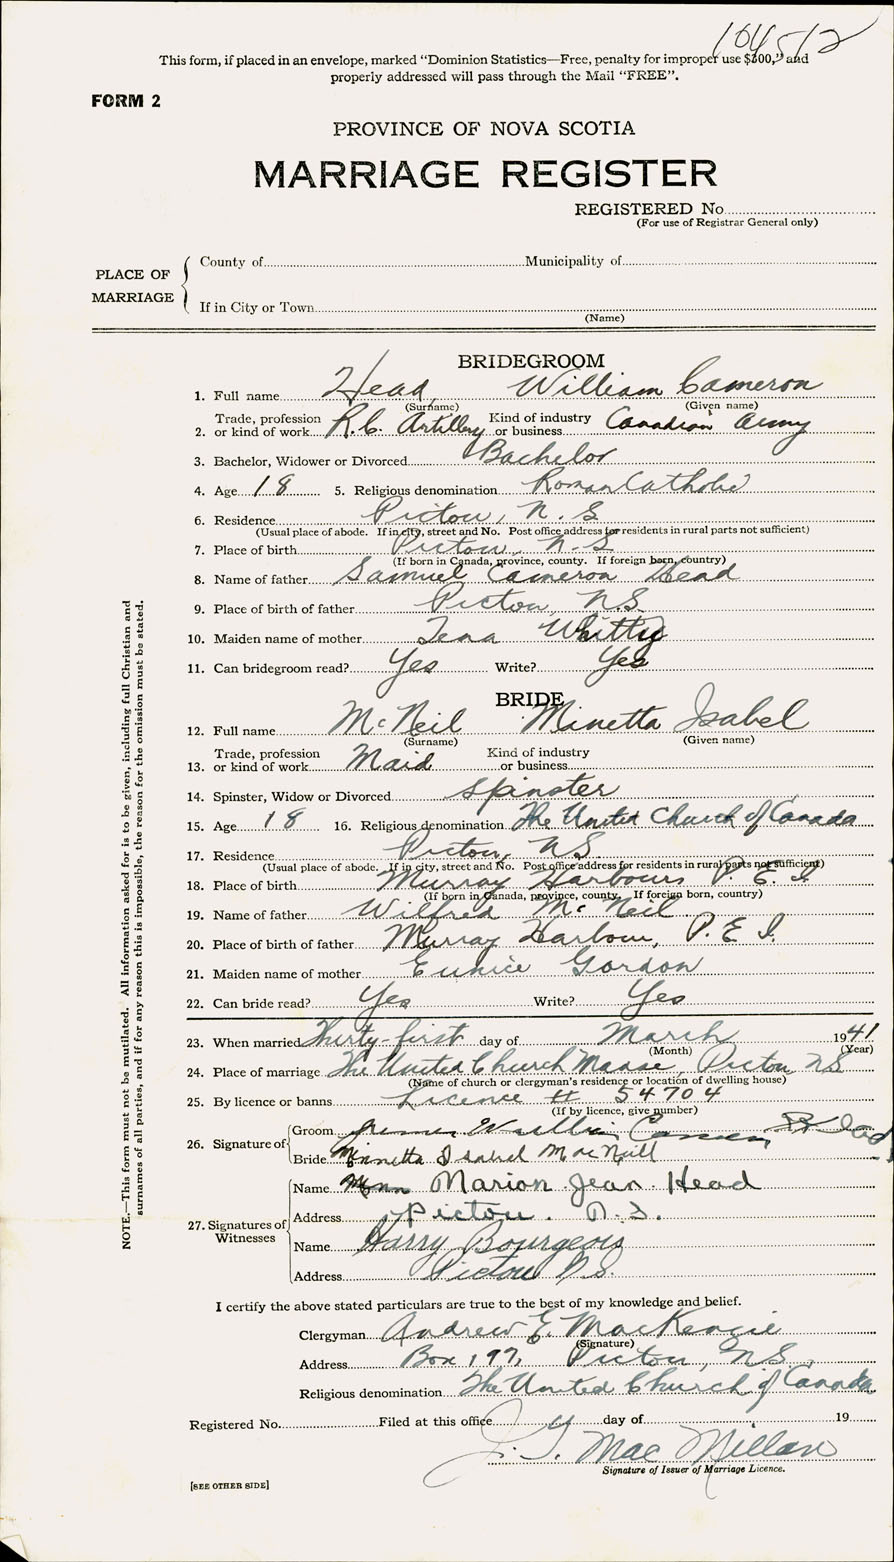 104512
This form, if placed in an envelope, marked “Dominion Statistics—Free, penalty for improper use $300,” and
properly addressed will pass through the Mail “FREE”.
FORM 2
PROVINCE OF NOVA SCOTIA
MARRIAGE REGISTER
REGISTERED No.
(For use of Registrar General only)
PLACE OF MARRIAGE
County of Municipality of
If in City or Town
(Name)
BRIDEGROOM
1. Full name Head, William Cameron
(Surname) (Given name)
2. Trade, profession or kind of work R.C. Artillery Kind of industry or business Canadian Army
3. Bachelor, Widower or Divorced Bachelor
4. Age 18 5. Religious denomination Roman Catholic
6. Residence Pictou, N. S
(Usual place of abode. If in city, street and No. Post office address for residents in rural parts not sufficient)
7. Place of birth Pictou, N. S
(If born in Canada, province, county. If foreign born, country)
8. Name of father Samuel Cameron Head
9. Place of birth of father Pictou, N.S.
10. Maiden name of mother Tena Whitty
11. Can bridegroom read? Yes Write? Yes
BRIDE
12. Full name McNeil Minetta Isabel
(Surname) (Given name)
13. Trade, profession or kind of work Maid Kind of industry or business
14. Spinster, Widow or Divorced Spinster
15. Age 18 16. Religious denomination The United Church of Canada
17. Residence Pictou, NS
(Usual place of abode. If in city, street and No. Post office address for residents in rural parts not sufficient)
18. Place of birth Murray Harbour, P. E. I
(If born in Canada, province, county. If foreign born, country)
19. Name of father Wilfred McNeil
20. Place of birth of father Murray Harbour, P. E I.
21. Maiden name of mother Eunice Gordon
22. Can bride read? Yes Write? Yes
23. When married Thirty-first day of March 1941
(Month) (Year)
24. Place of marriage The United Church Manse, Pictou, NS
(Name of church or clergyman's residence or location of dwelling house)
25. By licence or banns Licence # 54704
(If by licence, give number)
26. Signature of
Groom William Cameron Head
Bride Minnetta Isabel MacNeill
27. Signatures of Witnesses
Name Marion Jean Head
Address Pictou. N.S.
Name Harry Bourgeois
Address Pictou N.S.
I certify the above stated particulars are true to the best of my knowledge and belief.
Clergyman Andrew E. MacKenzie
(Signature)
Address Box 197, Pictou, NS.
Religious denomination The United Church of Canada
Registered No. Filed at this office day of 19
J. Y. MacMillan
Signature of Issuer of Marriage Licence.
[SEE OTHER SIDE]
NOTE.—This form must not be mutilated. All information asked for is to be given, including full Christian and
surnames of all parties, and if for any reason this is impossible, the reason for the omission must be stated.